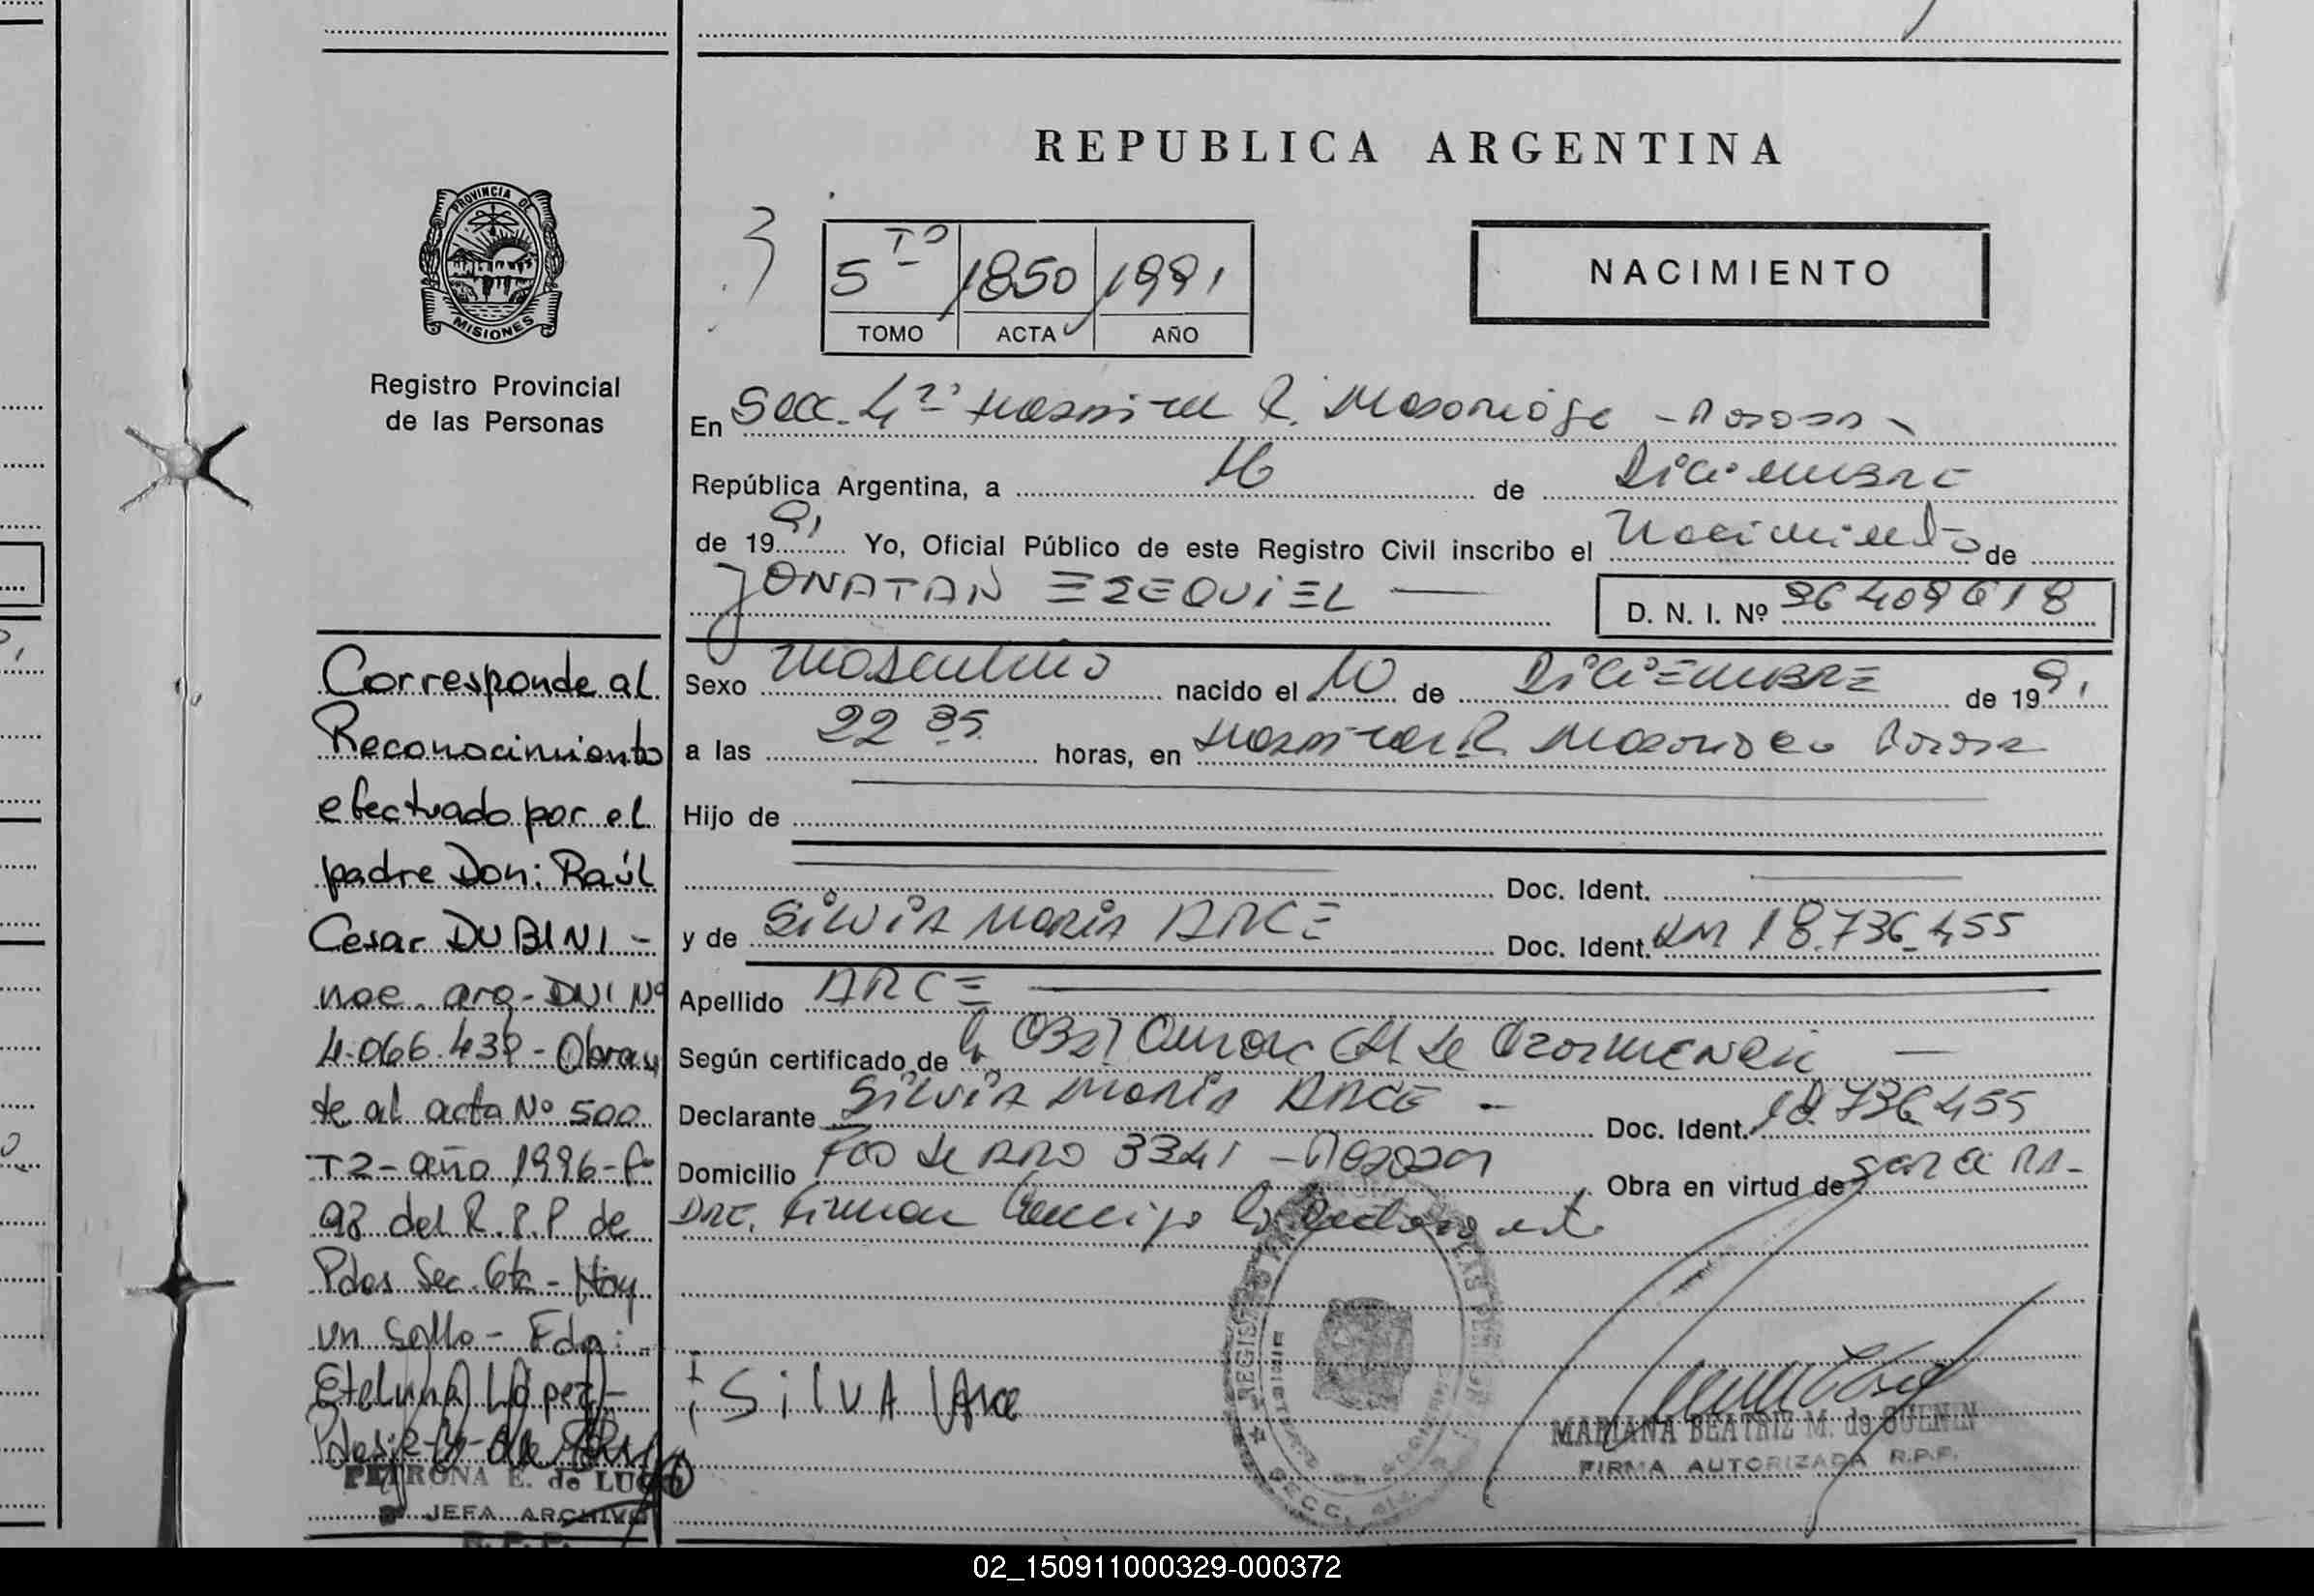 REPUBLICA ARGENTINA
PROVINCIA DE MISIONES
Registro Provincial
de las Personas
5 TO 1850 1991
TOMO ACTA AÑO
NACIMIENTO
En Secc. 4ta Hospital R. Madariaga - Posadas -
República Argentina, a 16 de Diciembre
de 1991 Yo, Oficial Público de este Registro Civil inscribo el Nacimiento de
JONATAN EZEQUIEL
D. N. I. Nº 36409618
Sexo Masculino nacido el 10 de DiCiEMBRE de 1991
a las 22 35 horas, en Hospital R. Madariaga Posadas
Hijo de
Doc. Ident.
y de SiLViA MARiA ARCE Doc. Ident. 18.736.455
Apellido ARCE
Según certificado de la Obst
Declarante SiLViA MARiA ARCE - Doc. Ident. 18.736.455
Domicilio 3341 - Posadas Obra en virtud de
Firman la declarante
SiLVA Arce
MARIANA BEATRIZ M. de GUENIN
FIRMA AUTORIZADA R.P.P.
Corresponde al
Reconocimiento
efectuado por el
padre Don: Raúl
Cesar DUBINI -
nac. arg- DNI Nº
Obran
te al acta Nº 500
T2- año 1996- fº
98 del R.P.P de
Pdas Sec. 6ta - Hay
un Sello - Fdo:
Etelvina López -
PETRONA E. de LUGO
JEFA ARCHIVO
R.P.P.
02_150911000329-000372